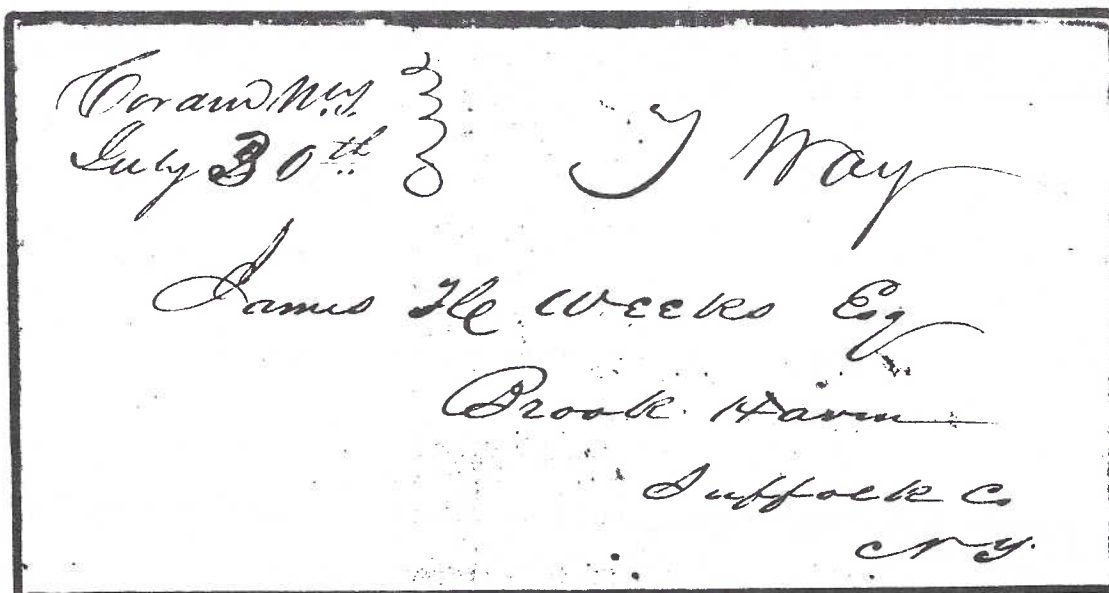 Coram N.Y.
July 30th
Way
James H Weeks Esq
Brook Haven
Suffolk Co
N Y.